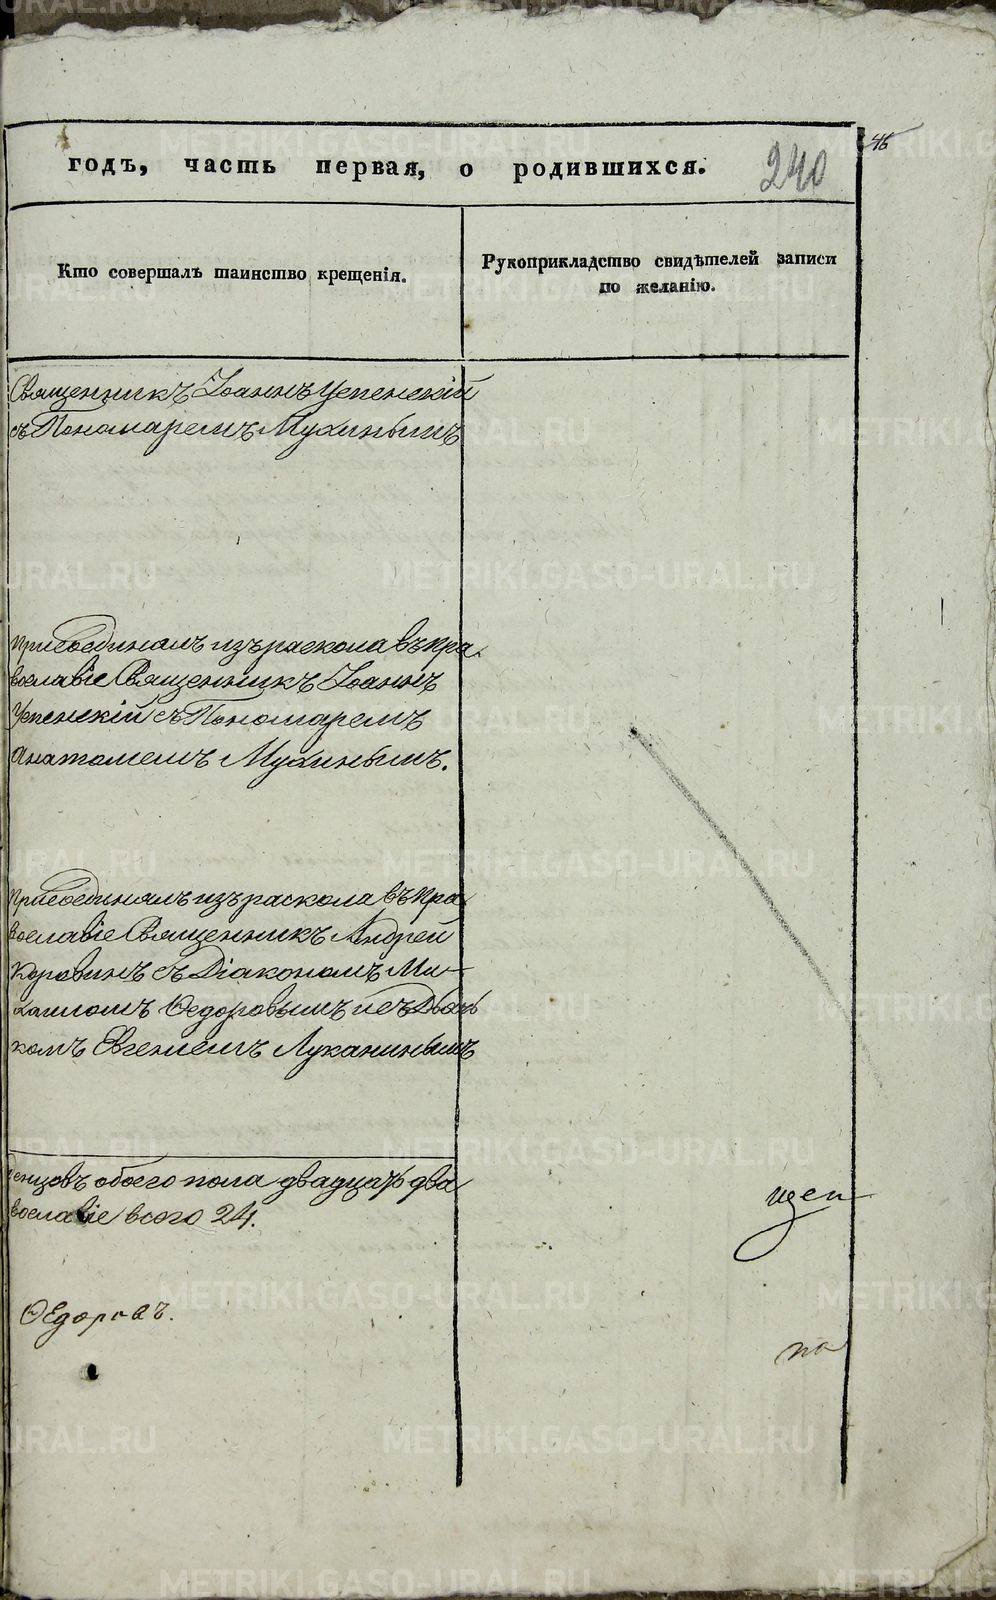 годъ, часть первая, о родившихся.
240
46
Кто совершалъ таинство крещенія.
Рукоприкладство свидѣтелей записи
по желанію.
Священникъ Іоаннъ Успенскій
съ Пономаремъ Мухинымъ
Присоединялъ изъ раскола въ пра
вославіе Священникъ Іоаннъ
Успенскій съ Пономаремъ
Анатолиемъ Мухинымъ.
Присоединялъ изъ раскола въ пра
вославіе Священникъ Андрей
Коровинъ съ Діакономъ Ми-
хаиломъ Ѳедоровымъ и съ Дьяч
комъ Евгениемъ Луканинымъ
енцовъ обоего пола двадцать два
вославіе всего 24.
щен
Ѳедоровъ.
по
METRIKI.GASO-URAL.RU